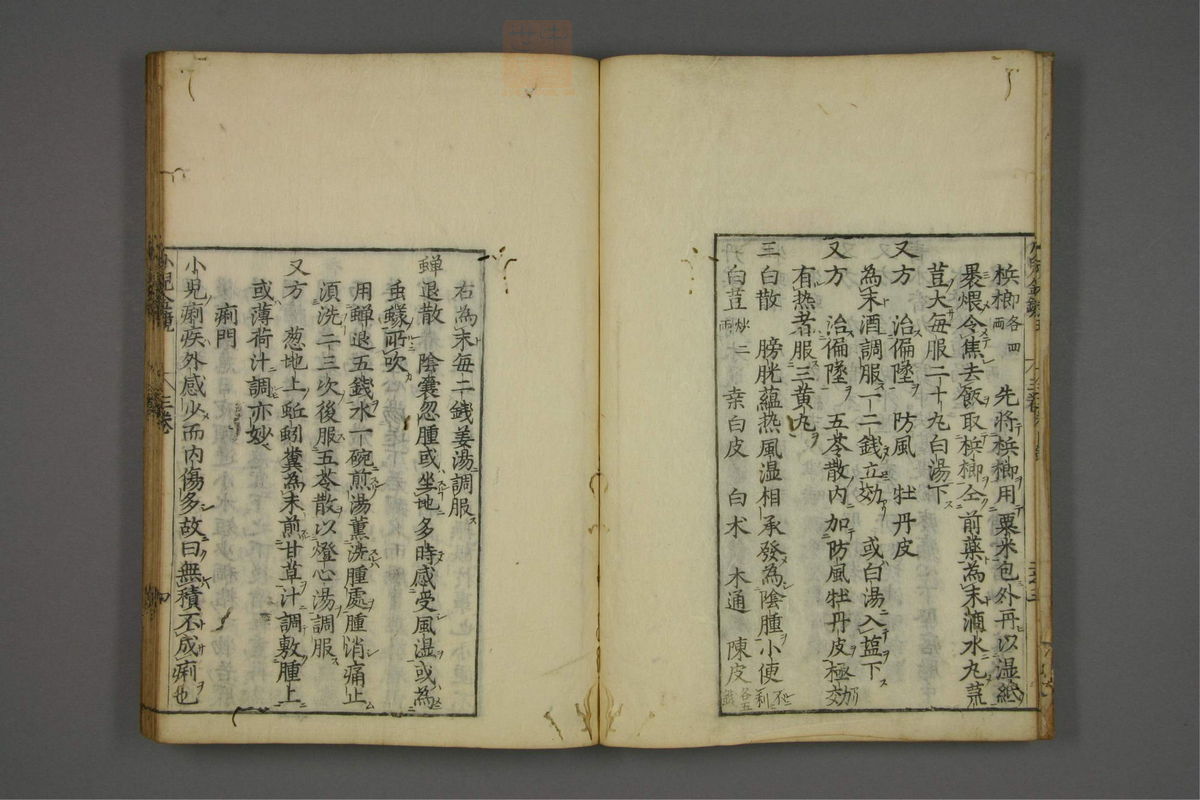 梹榔各四両　先将梹榔用粟米包外丹以湿紙
裹煨令焦去飯取梹榔仝前藥為末滴水丸菉
荳大毎服二十丸白湯下
又方　治偏墜　防風　牡丹皮
為末酒調服一二錢立効　或白湯入塩下
又方　治偏墜　五苓散内加防風牡丹皮極効
有热者服三黄丸
三白散　膀胱蘊热風湿相承發為陰腫小便不利
白荳炒二両　桒白皮　白术　木通　陳皮各五錢
右為末毎二錢姜湯調服
蟬退散　陰囊忽腫或坐地多時感受風湿或為
虫蟻所吹
用蟬退五錢水一碗煎湯薫洗腫處腫消痛止
湏洗二三次後服五苓散以燈心湯調服
又方　葱地上蚯蚓糞為末煎甘草汁調敷腫上
或薄荷汁調亦妙
痢門
小児痢疾外感少而内傷多故曰無積不成痢也
小児全鏡